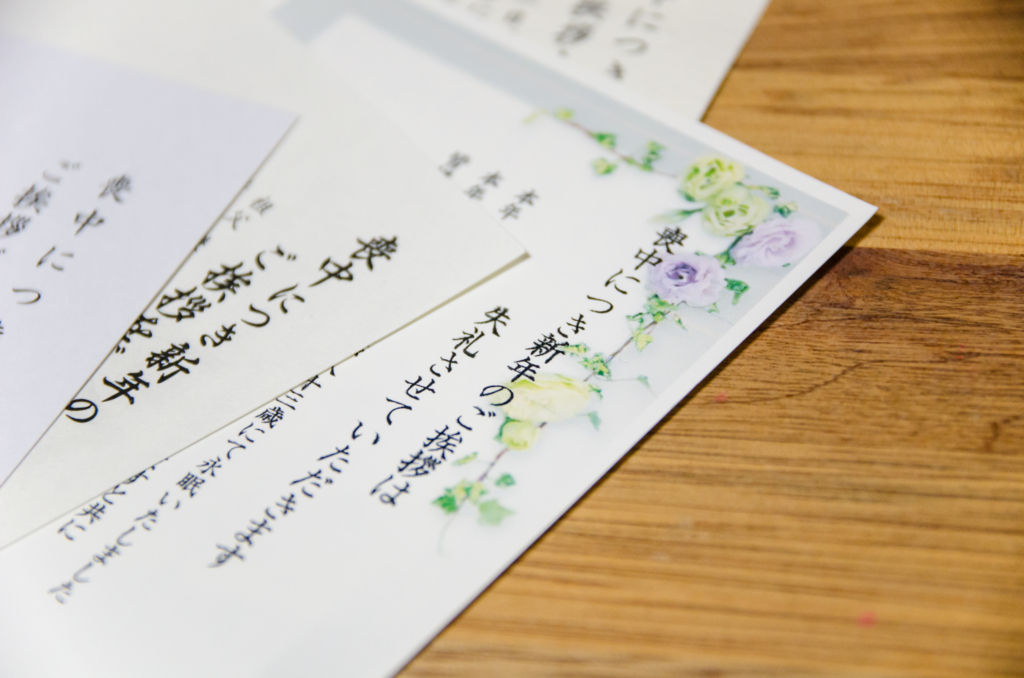 喪中につき新年のご挨拶は
失礼させていただきます
歳にて永眠いたしました
と共に
喪中につき新年の
ご挨拶を
祖父
喪中につ
ご挨拶
につき